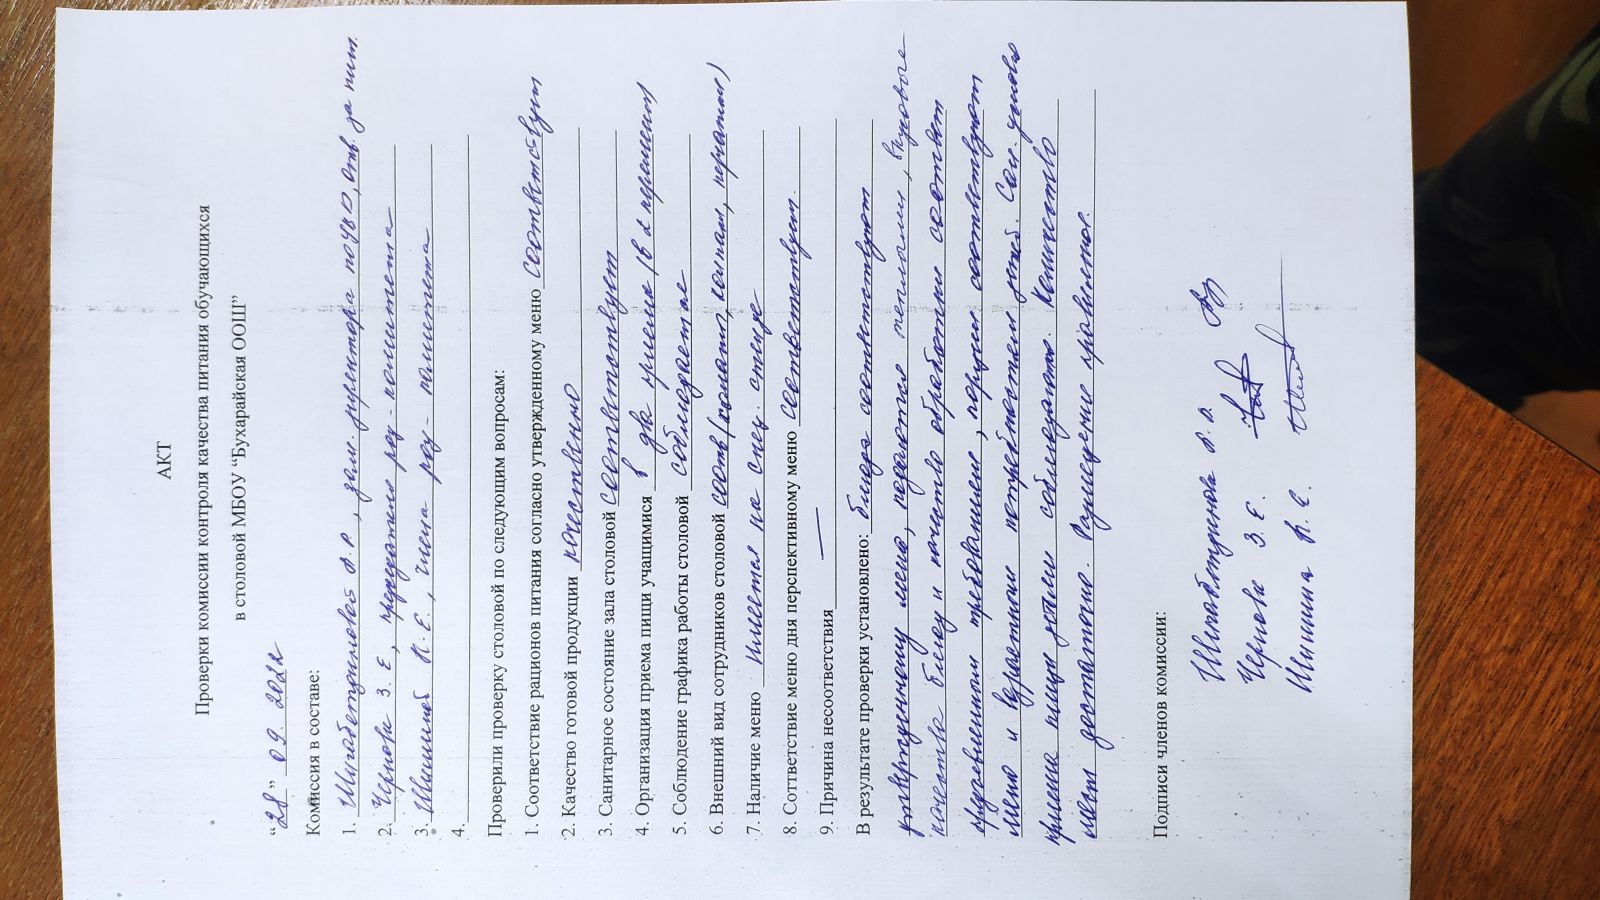 АКТ
Проверки комиссии контроля качества питания обучающихся
в столовой МБОУ “Бухарайская ООШ”
“28” 09. 2022
Комиссия в составе:
1. зам. директора по УВР, отв. за пит.
2. Чернова З. Е., председателя род-комитета
3. Шишиной К. Е., члена род-комитета
4.
Проверили проверку столовой по следующим вопросам:
1. Соответствие рационов питания согласно утвержденному меню соответствует
2. Качество готовой продукции качественно
3. Санитарное состояние зала столовой соответствует
4. Организация приема пищи учащимися в два приема (в 2 перемены)
5. Соблюдение графика работы столовой соблюдается
6. Внешний вид сотрудников столовой соотв (халат, колпак, перчатки)
7. Наличие меню имеется на спец. стенде
8. Соответствие меню дня перспективному меню соответствует.
9. Причина несоответствия —
В результате проверки установлено: блюда соответствуют
утвержденному меню, подаются теплыми, вкусовые
качества блюд и качество обработки соответ
предъявленным требованиям, порции соответствуют
меню и возрастным потребностям детей. Сан. условия
приема пищи детьми соблюдаются. Количество
мест достаточно. Размещение правильное.
Подписи членов комиссии:
Чернова З. Е.
Шишина К. Е.